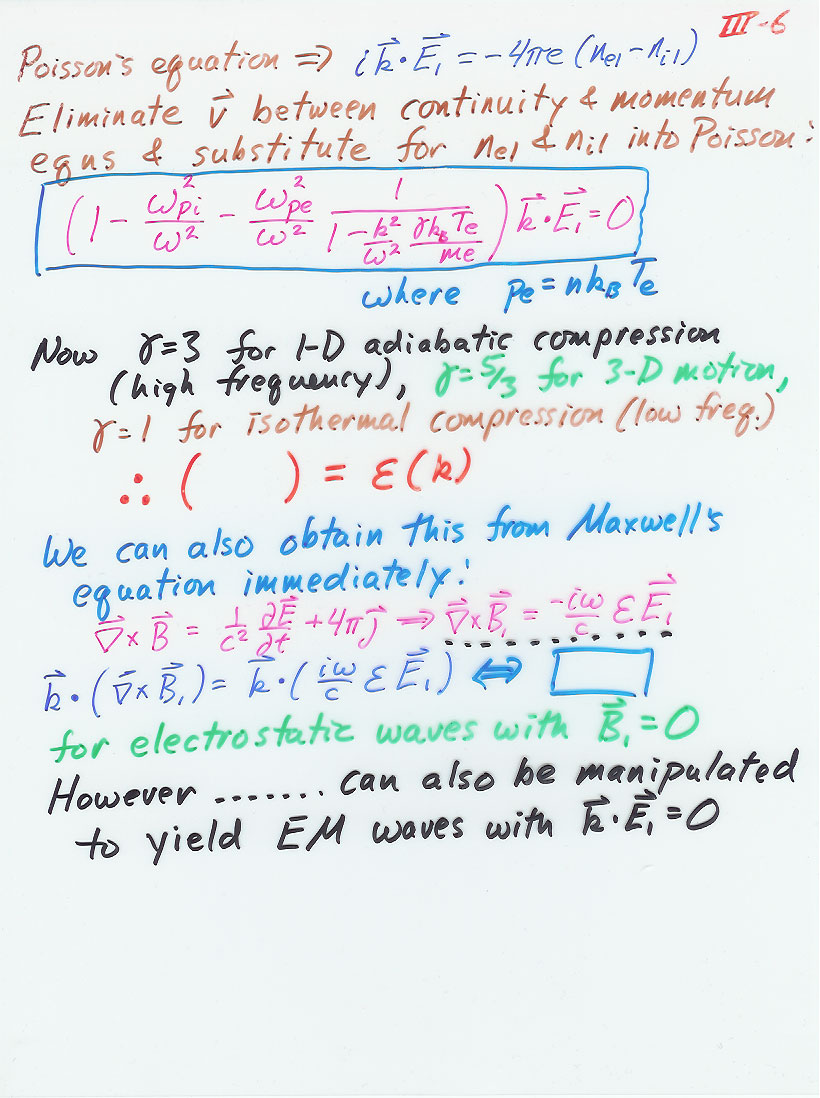 III-6
Poisson's equation ⇒ i k⃗·E⃗₁ = -4πe (n_e1 - n_i1)
Eliminate v⃗ between continuity & momentum
eqns & substitute for n_e1 & n_i1 into Poisson:
(1 - ω_pi²/ω² - ω_pe²/ω² 1/(1 - k²/ω² γk_BT_e/m_e)) k⃗·E⃗₁ = 0
where p_e = nk_BT_e
Now γ=3 for 1-D adiabatic compression
(high frequency), γ=5/3 for 3-D motion,
γ=1 for isothermal compression (low freq.)
∴ ( ) = ε(k)
We can also obtain this from Maxwell's
equation immediately:
∇⃗×B⃗ = 1/c² ∂E⃗/∂t + 4πj⃗ ⇒ ∇⃗×B⃗₁ = -iω/c ε E⃗₁
k⃗·(∇⃗×B⃗₁) = k⃗·(iω/c ε E⃗₁) ⇔
for electrostatic waves with B⃗₁=0
However ....... can also be manipulated
to yield EM waves with k⃗·E⃗₁=0